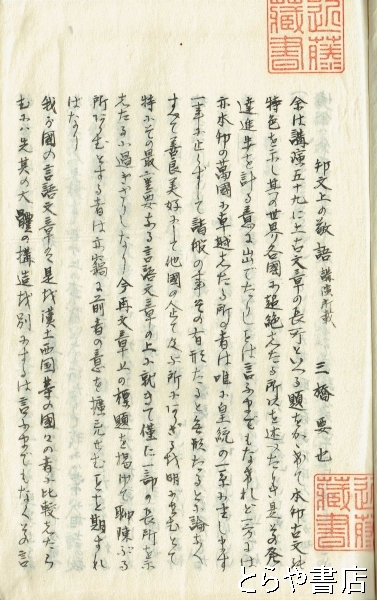 近藤
藏書
邦文上の敬語 講演所載
三橋要也
余は講演五十九に上古文章の長所といへる題をかゝげて本邦古文の
特色を示し其の世界各國に超絶したる所以を述べたりき是その発
達進歩を計る意に出でたりしとは言ふまでもなけれど一方には
亦本邦の萬國に卓越したる所の者は唯に皇統の一事に
一事に止らずして諸般の事その有形たると無形たるとに論なく
すべて善良美好にして他國の企て及ぶ所にあらざるを明にせむとて
特にその最重要なる言語文章の上に就きて僅に一部の長所を示
したるに過ぎざりしなり今再文章上の標題を掲げて聊陳ぶる
所あらむとする者は亦窃に前者の意を擴充せむことを期すれ
ばなり
我が國の言語文章を是を漢土西國等の國々の者に比較したら
むには先其の大體の構造を別にするは言ふまでもなくその言
近藤
藏書
とらや書店